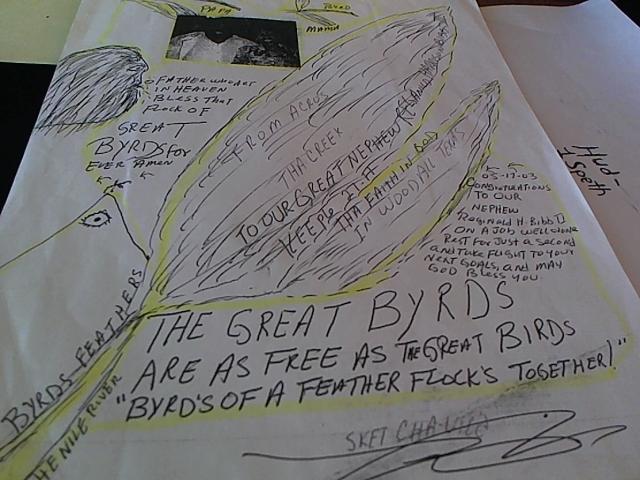 PAPA
BYRD
MAMA
FATHER WHO ART
IN HEAVEN
BLESS THAT
FLOCK OF
GREAT
BYRDS FOR
EVER AMEN
FROM ACROS
THA CREEK
TO OUR GREAT NEPHEW
KEEP
THA FAITH IN GOD
IN WOODALL TENNS
03-17-03
CONGRATULATIONS
TO OUR
NEPHEW
Reginald H. Bibb II
ON A JOB WELL DONE
REST FOR JUST A SECOND
AND TAKE FLIGHT TO YOUR
NEXT GOALS, AND MAY
GOD BLESS YOU.
BYRDS FEATHERS
HE NILE RIVER
THE GREAT BYRDS
ARE AS FREE AS THE GREAT BIRDS
"BYRD'S OF A FEATHER FLOCK'S TOGETHER)."
SKET
Hud-
Speth